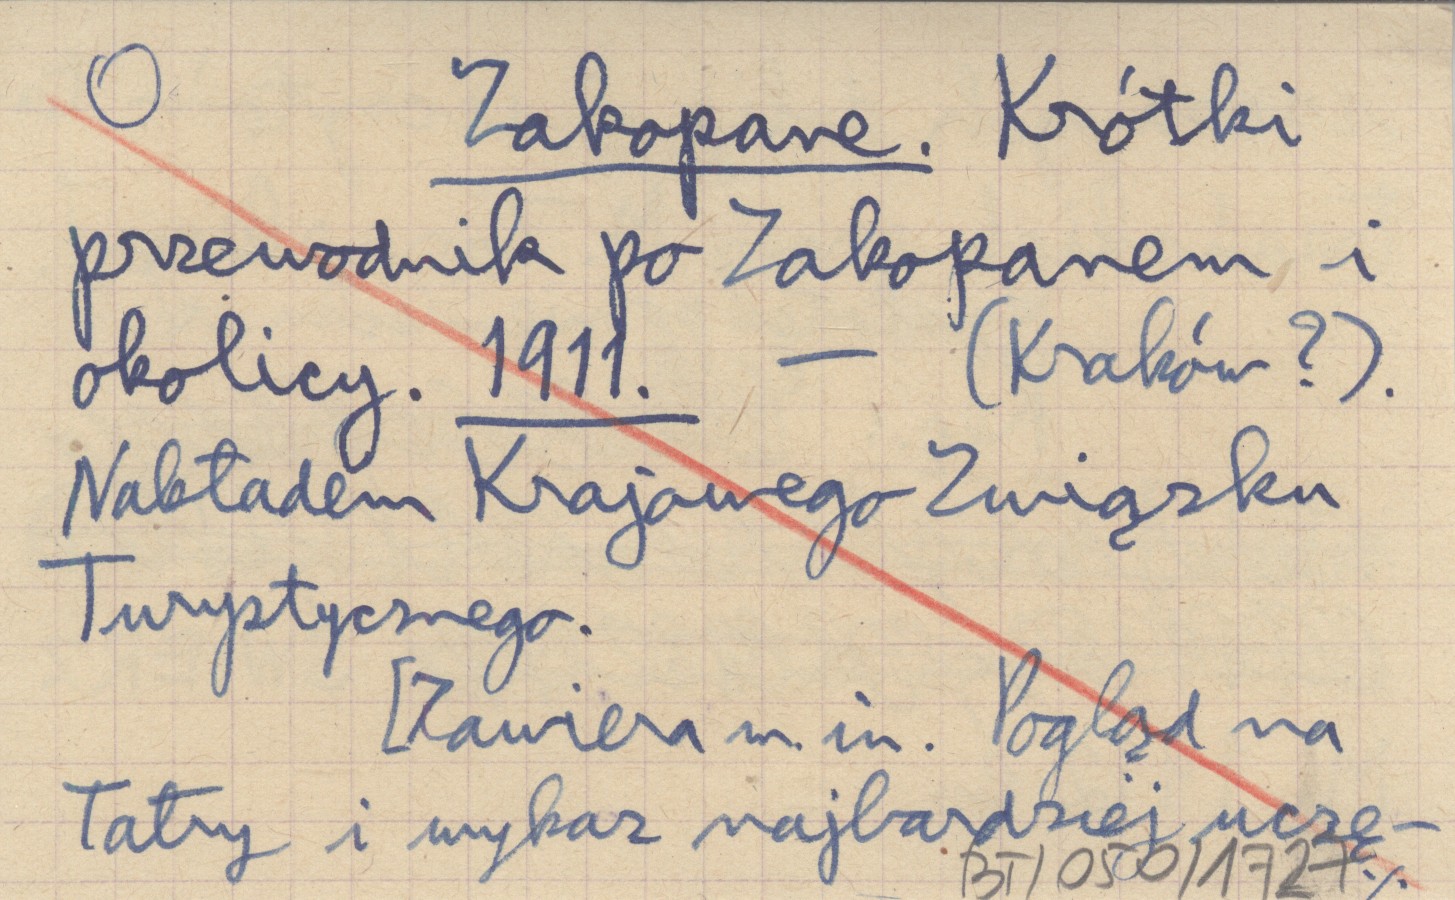 O Zakopane. Krótki
przewodnik po Zakopanem i
okolicy. 1911. — (Kraków?).
Nakładem Krajowego Związku
Turystycznego.
[Zawiera m. in. Pogląd na
Tatry i wykaz najbardziej uczę-
BT/0500/1727 ·/.